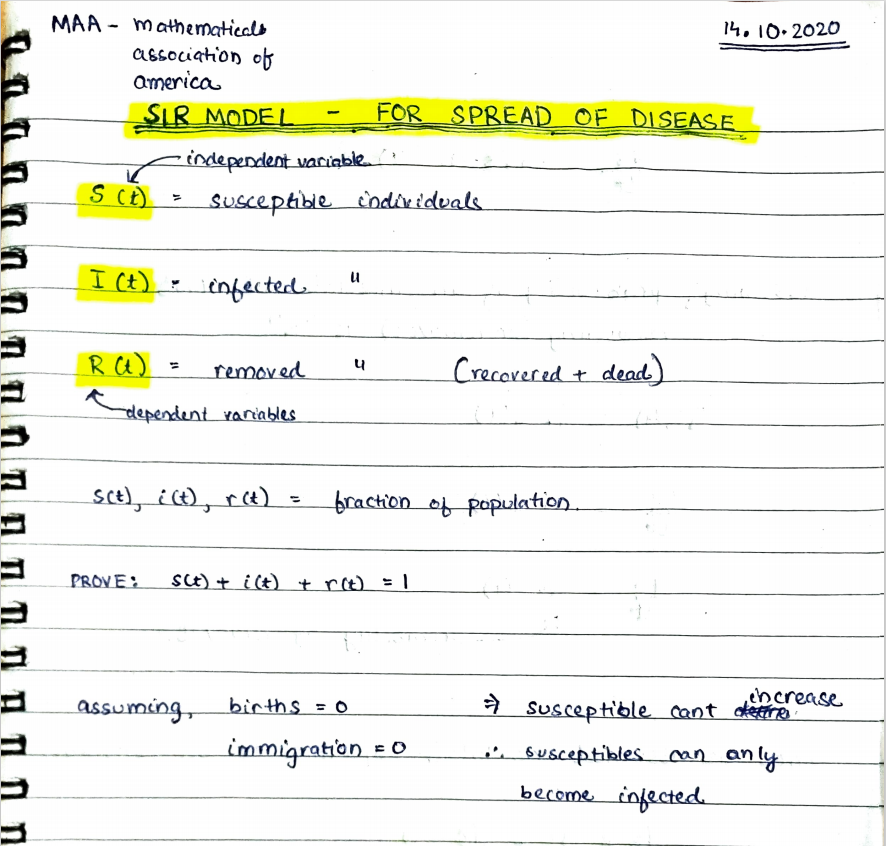 MAA - mathematical
association of
america
14.10.2020
SIR MODEL - FOR SPREAD OF DISEASE
independent variable
S(t) = susceptible individuals
I(t) = infected "
R(t) = removed " (recovered + dead)
dependent variables
s(t), i(t), r(t) = fraction of population.
PROVE: s(t) + i(t) + r(t) = 1
assuming, births = 0 ⇒ susceptible cant increase
immigration = 0 ∴ susceptibles can only
become infected